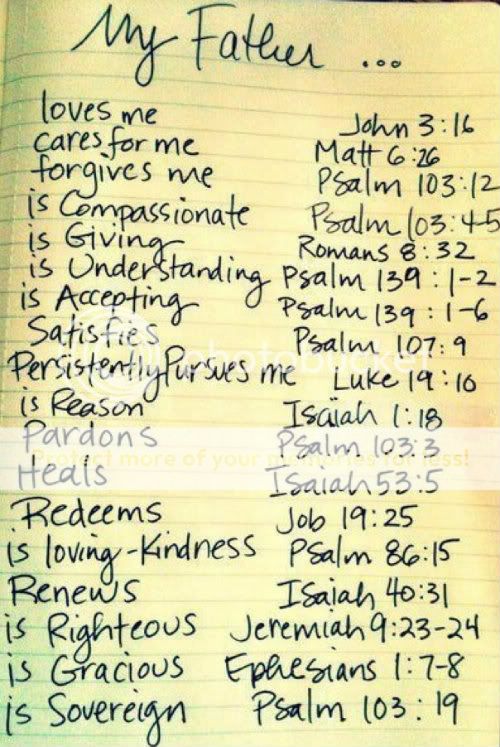 My Father ...
loves me John 3:16
cares for me Matt 6:26
forgives me Psalm 103:12
is Compassionate Psalm 103:4-5
is Giving Romans 8:32
is Understanding Psalm 139:1-2
is Accepting Psalm 139:1-6
Satisfies Psalm 107:9
Persistently Pursues me Luke 19:10
is Reason Isaiah 1:18
Pardons Psalm 103:3
Protect more of your memories for less!
Heals Isaiah 53:5
Redeems Job 19:25
is loving-Kindness Psalm 86:15
Renews Isaiah 40:31
is Righteous Jeremiah 9:23-24
is Gracious Ephesians 1:7-8
is Sovereign Psalm 103:19